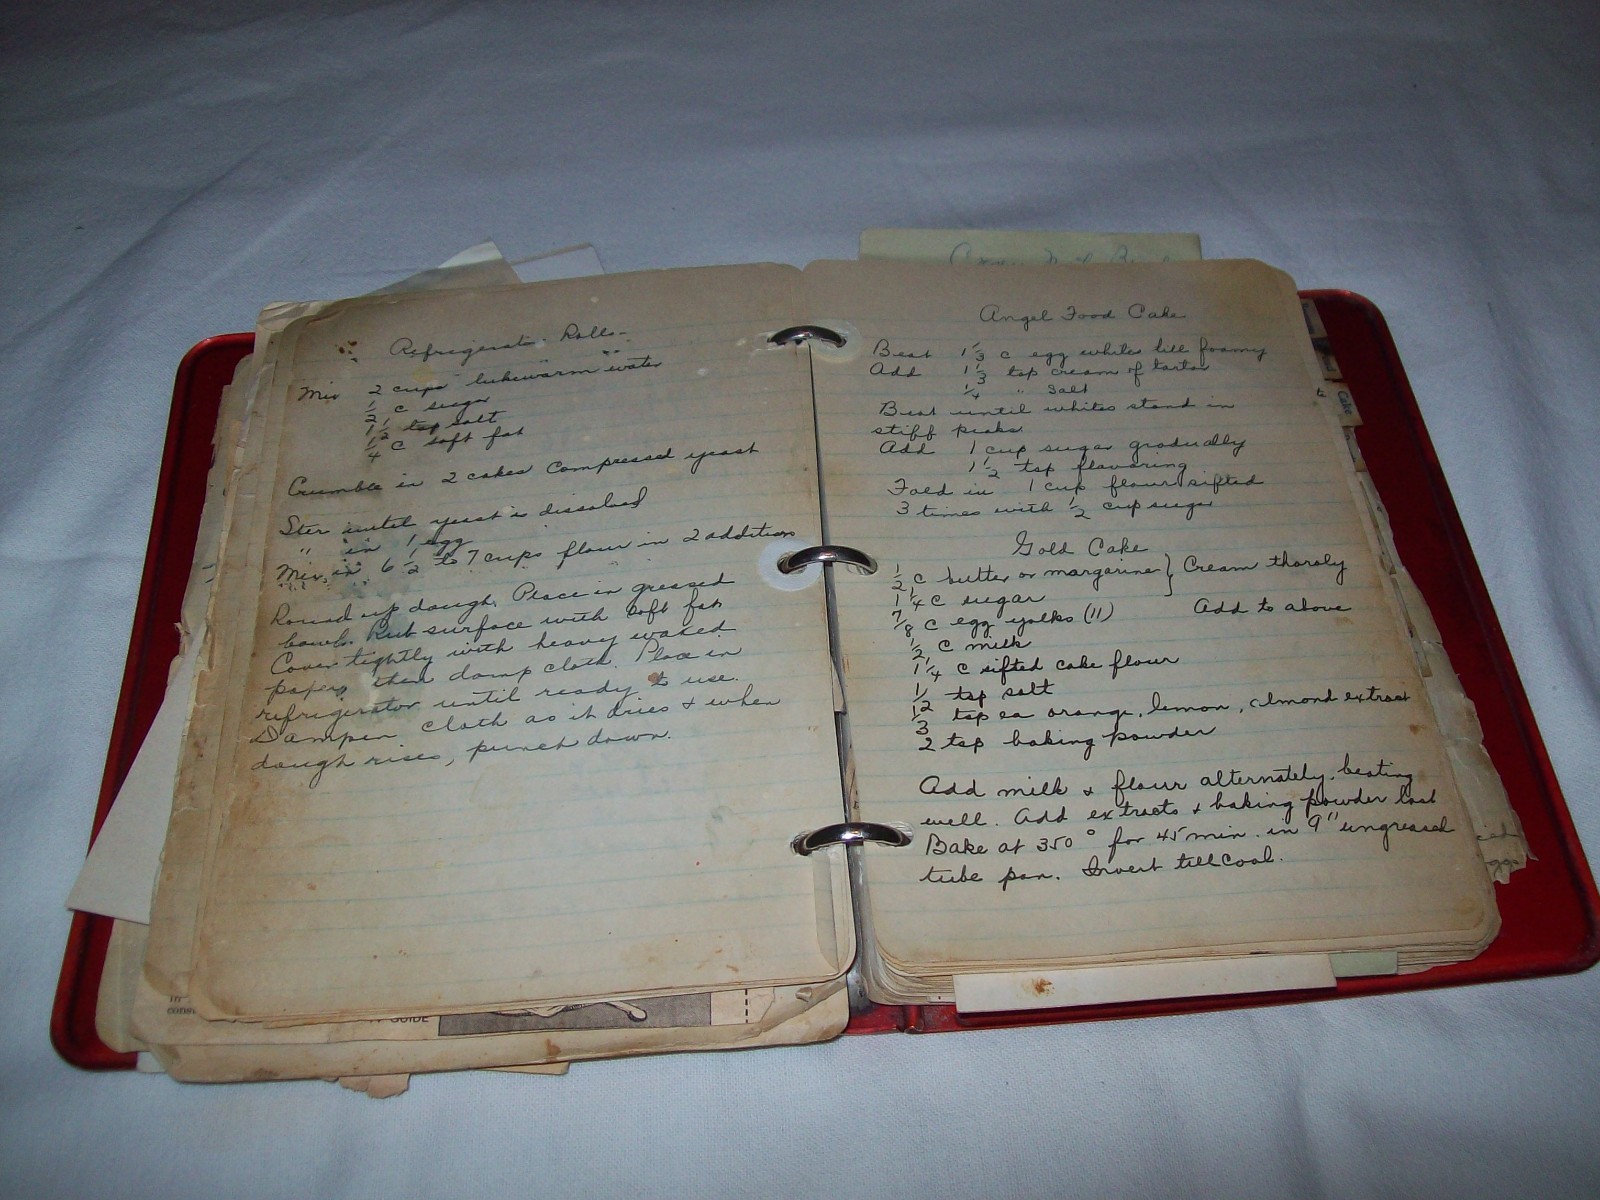 Refrigerator Rolls
Mix 2 cups lukewarm water
1/2 c sugar
1 1/2 tsp salt
1/4 c soft fat
Crumble in 2 cakes compressed yeast
Stir until yeast is dissolved
" in 1 egg
Mix in 6 1/2 to 7 cups flour in 2 additions
Round up dough. Place in greased
bowl. Rub surface with soft fat
Cover tightly with heavy waxed
paper, then damp cloth. Place in
refrigerator until ready to use.
Dampen cloth as it dries & when
dough rises, punch down.
Angel Food Cake
Beat 1 1/3 c egg whites till foamy
Add 1 1/3 tsp cream of tartar
1/4 " salt
Beat until whites stand in
stiff peaks
Add 1 cup sugar gradually
1 1/2 tsp flavoring
Fold in 1 cup flour sifted
3 times with 1/2 cup sugar
Gold Cake
1/2 c butter or margarine } Cream thoroly
1 1/4 c sugar
7/8 c egg yolks (11) Add to above
1/2 c milk
1 1/4 c sifted cake flour
1/2 tsp salt
1/3 tsp ea orange, lemon, almond extract
2 tsp baking powder
Add milk & flour alternately, beating
well. Add extracts & baking powder last
Bake at 350° for 45 min. in 9" ungreased
tube pan. Invert till cool.
Cake
GUIDE